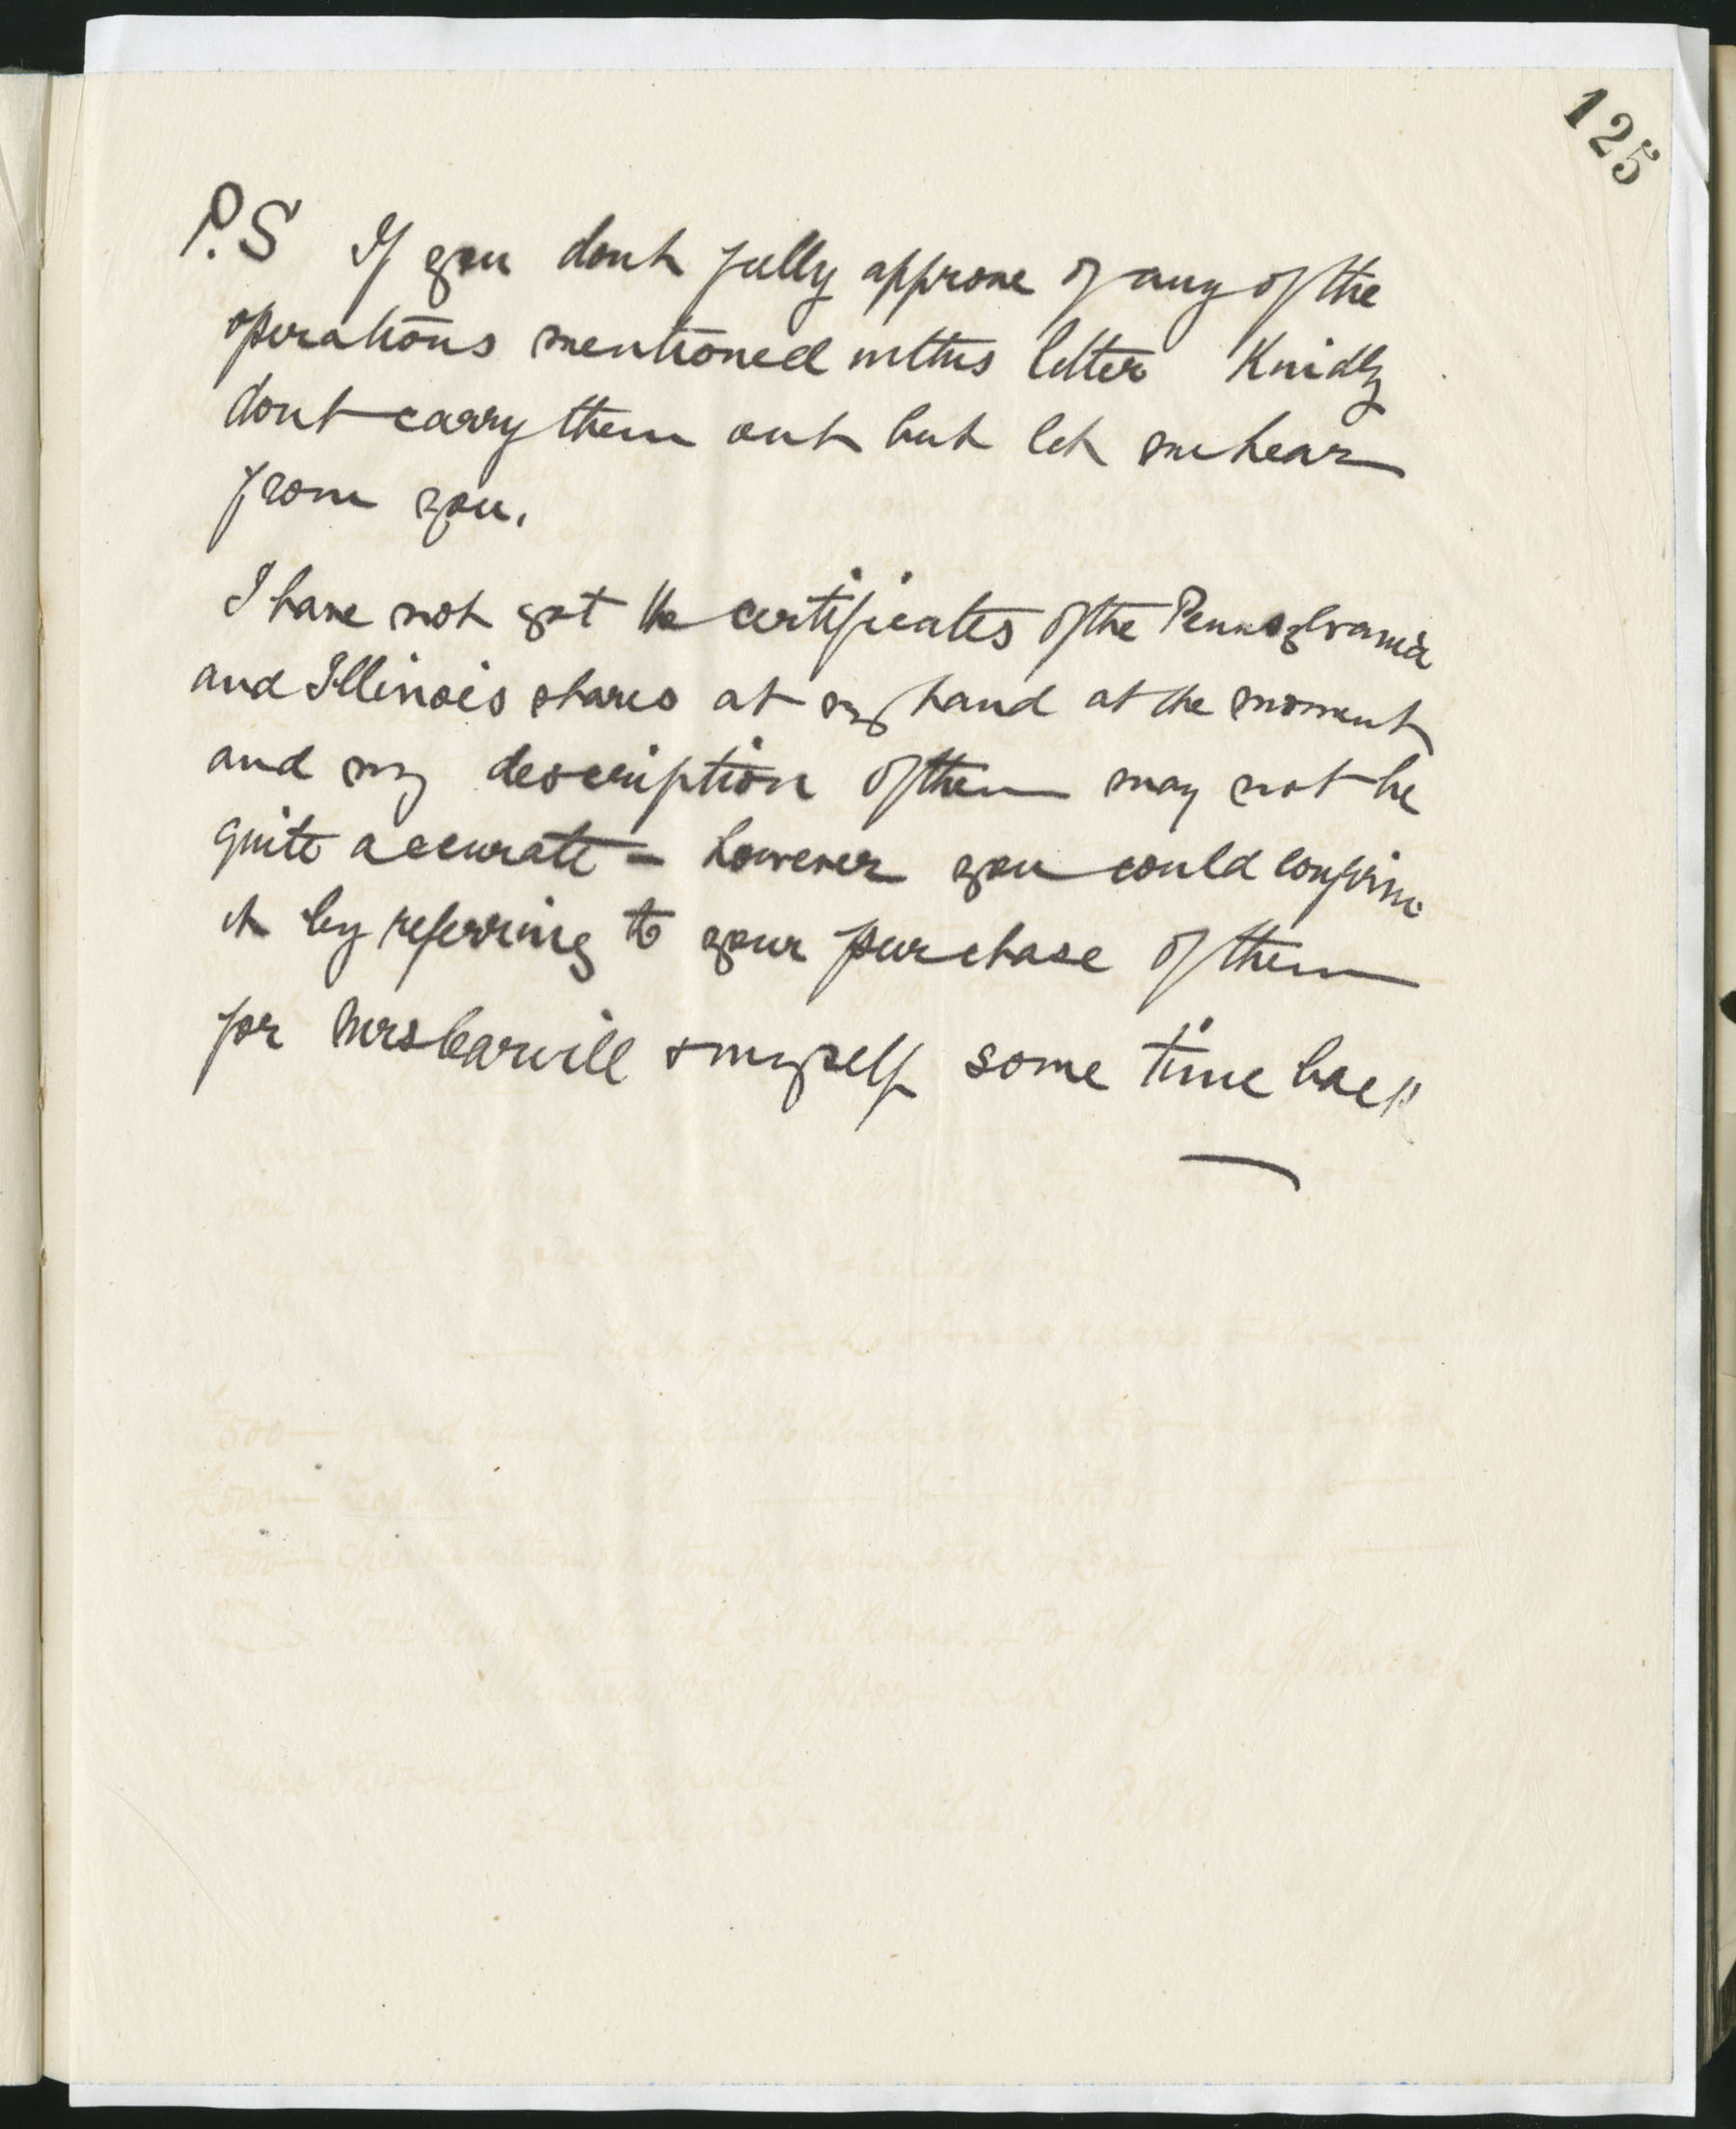 125
P.S If you dont fully approve of any of the
operations mentioned in this letter Kindly
dont carry them out but let me hear
from you.
I have not got the certificates of the Pennsylvania
and Illinois shares at my hand at the moment
and my description of them may not be
quite accurate – however you could confirm
it by referring to your purchase of them
for Mrs Carvill & myself some time back